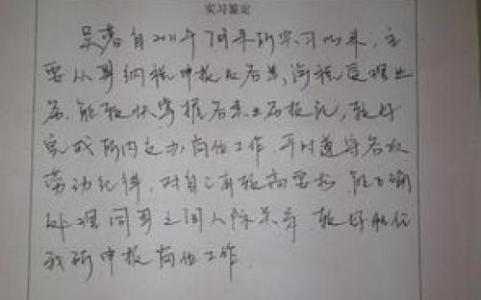 实习鉴定
吴蓉自2011年7月来所实习以来，主
要从事纳税申报及各类涉税受理业
务，能较快掌握各类业务技能，较好
完成所内定办岗位工作，平时遵守各级
劳动纪律，对自己有较高要求，能正确
处理同事之间人际关系，较好胜任
我所申报岗位工作。